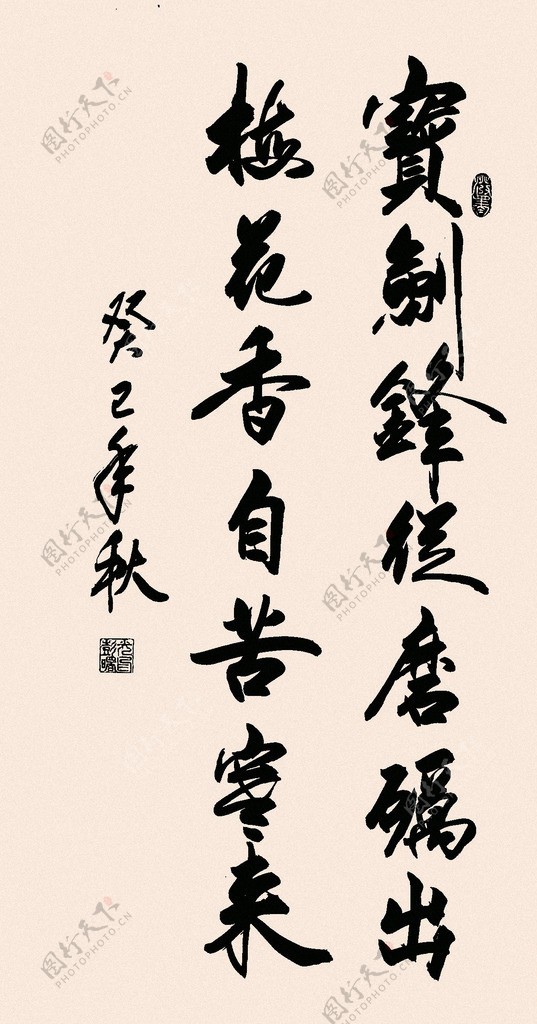 寶劍鋒從磨礪出
梅花香自苦寒來
癸巳年秋
图行天下
PHOTOPHOTO.CN